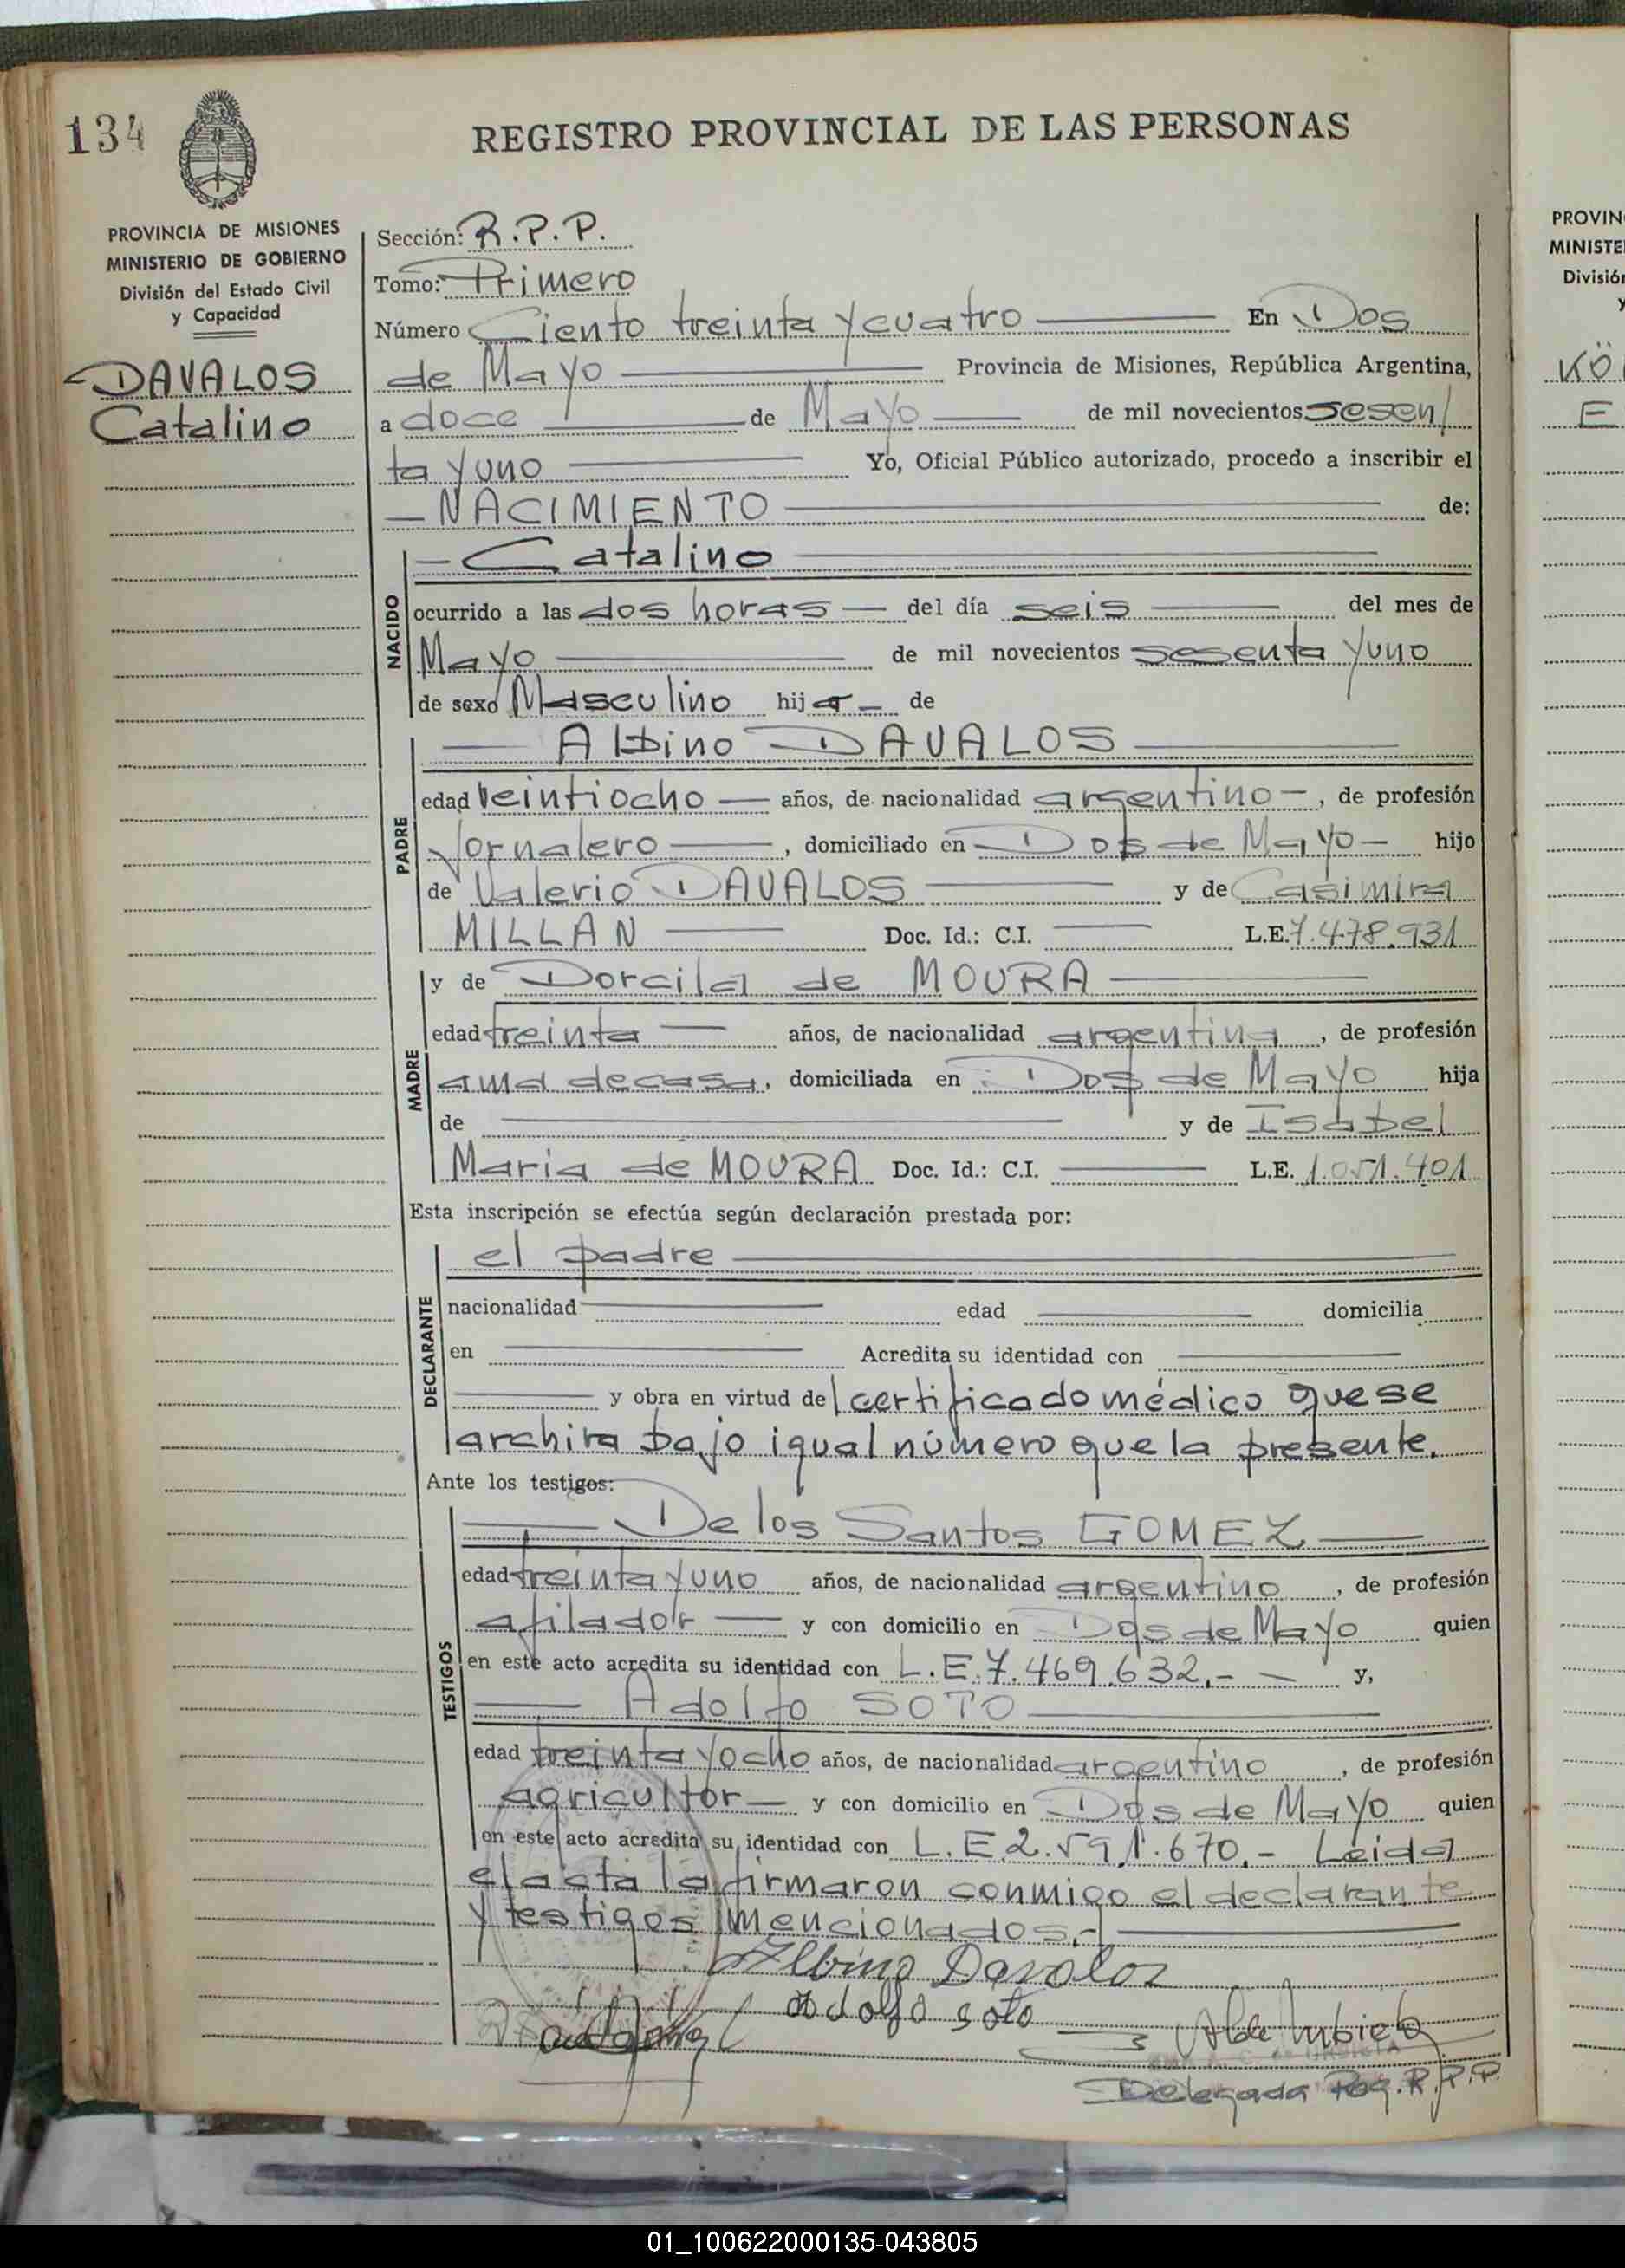 134
REGISTRO PROVINCIAL DE LAS PERSONAS
PROVINCIA DE MISIONES
MINISTERIO DE GOBIERNO
División del Estado Civil
y Capacidad
DAVALOS
Catalino
Sección: R.P.P.
Tomo: Primero
Número Ciento treinta y cuatro En Dos
de Mayo Provincia de Misiones, República Argentina,
a doce de Mayo de mil novecientos sesen/
ta y uno Yo, Oficial Público autorizado, procedo a inscribir el
NACIMIENTO de:
NACIDO
Catalino
ocurrido a las dos horas del día seis del mes de
Mayo de mil novecientos sesenta y uno
de sexo Masculino hij o de
PADRE
Albino DAVALOS
edad veintiocho años, de nacionalidad argentino, de profesión
Jornalero, domiciliado en Dos de Mayo hijo
de Valerio DAVALOS y de Casimira
MILLAN Doc. Id.: C.I. L.E. 7.478.931
MADRE
y de Dorcila de MOURA
edad treinta años, de nacionalidad argentina, de profesión
ama de casa, domiciliada en Dos de Mayo hija
de y de Isabel
Maria de MOURA Doc. Id.: C.I. L.E. 1.051.401
Esta inscripción se efectúa según declaración prestada por:
DECLARANTE
el padre
nacionalidad edad domicilia
en Acredita su identidad con
y obra en virtud del certificado médico que se
archiva bajo igual número que la presente.
Ante los testigos:
TESTIGOS
De los Santos GOMEZ
edad treinta y uno años, de nacionalidad argentino, de profesión
afilador y con domicilio en Dos de Mayo quien
en este acto acredita su identidad con L.E. 7.469.632.- y,
Adolfo SOTO
edad treinta y ocho años, de nacionalidad argentino, de profesión
agricultor y con domicilio en Dos de Mayo quien
en este acto acredita su identidad con L.E. 2.591.670.- Leida
el acta la firmaron conmigo el declarante
y testigos mencionados.-
Albino Davalos
Adolfo soto
Delegada Reg. R.P.P.
PROVIN
MINISTE
Divisiór
y
KÖ
E
01_100622000135-043805